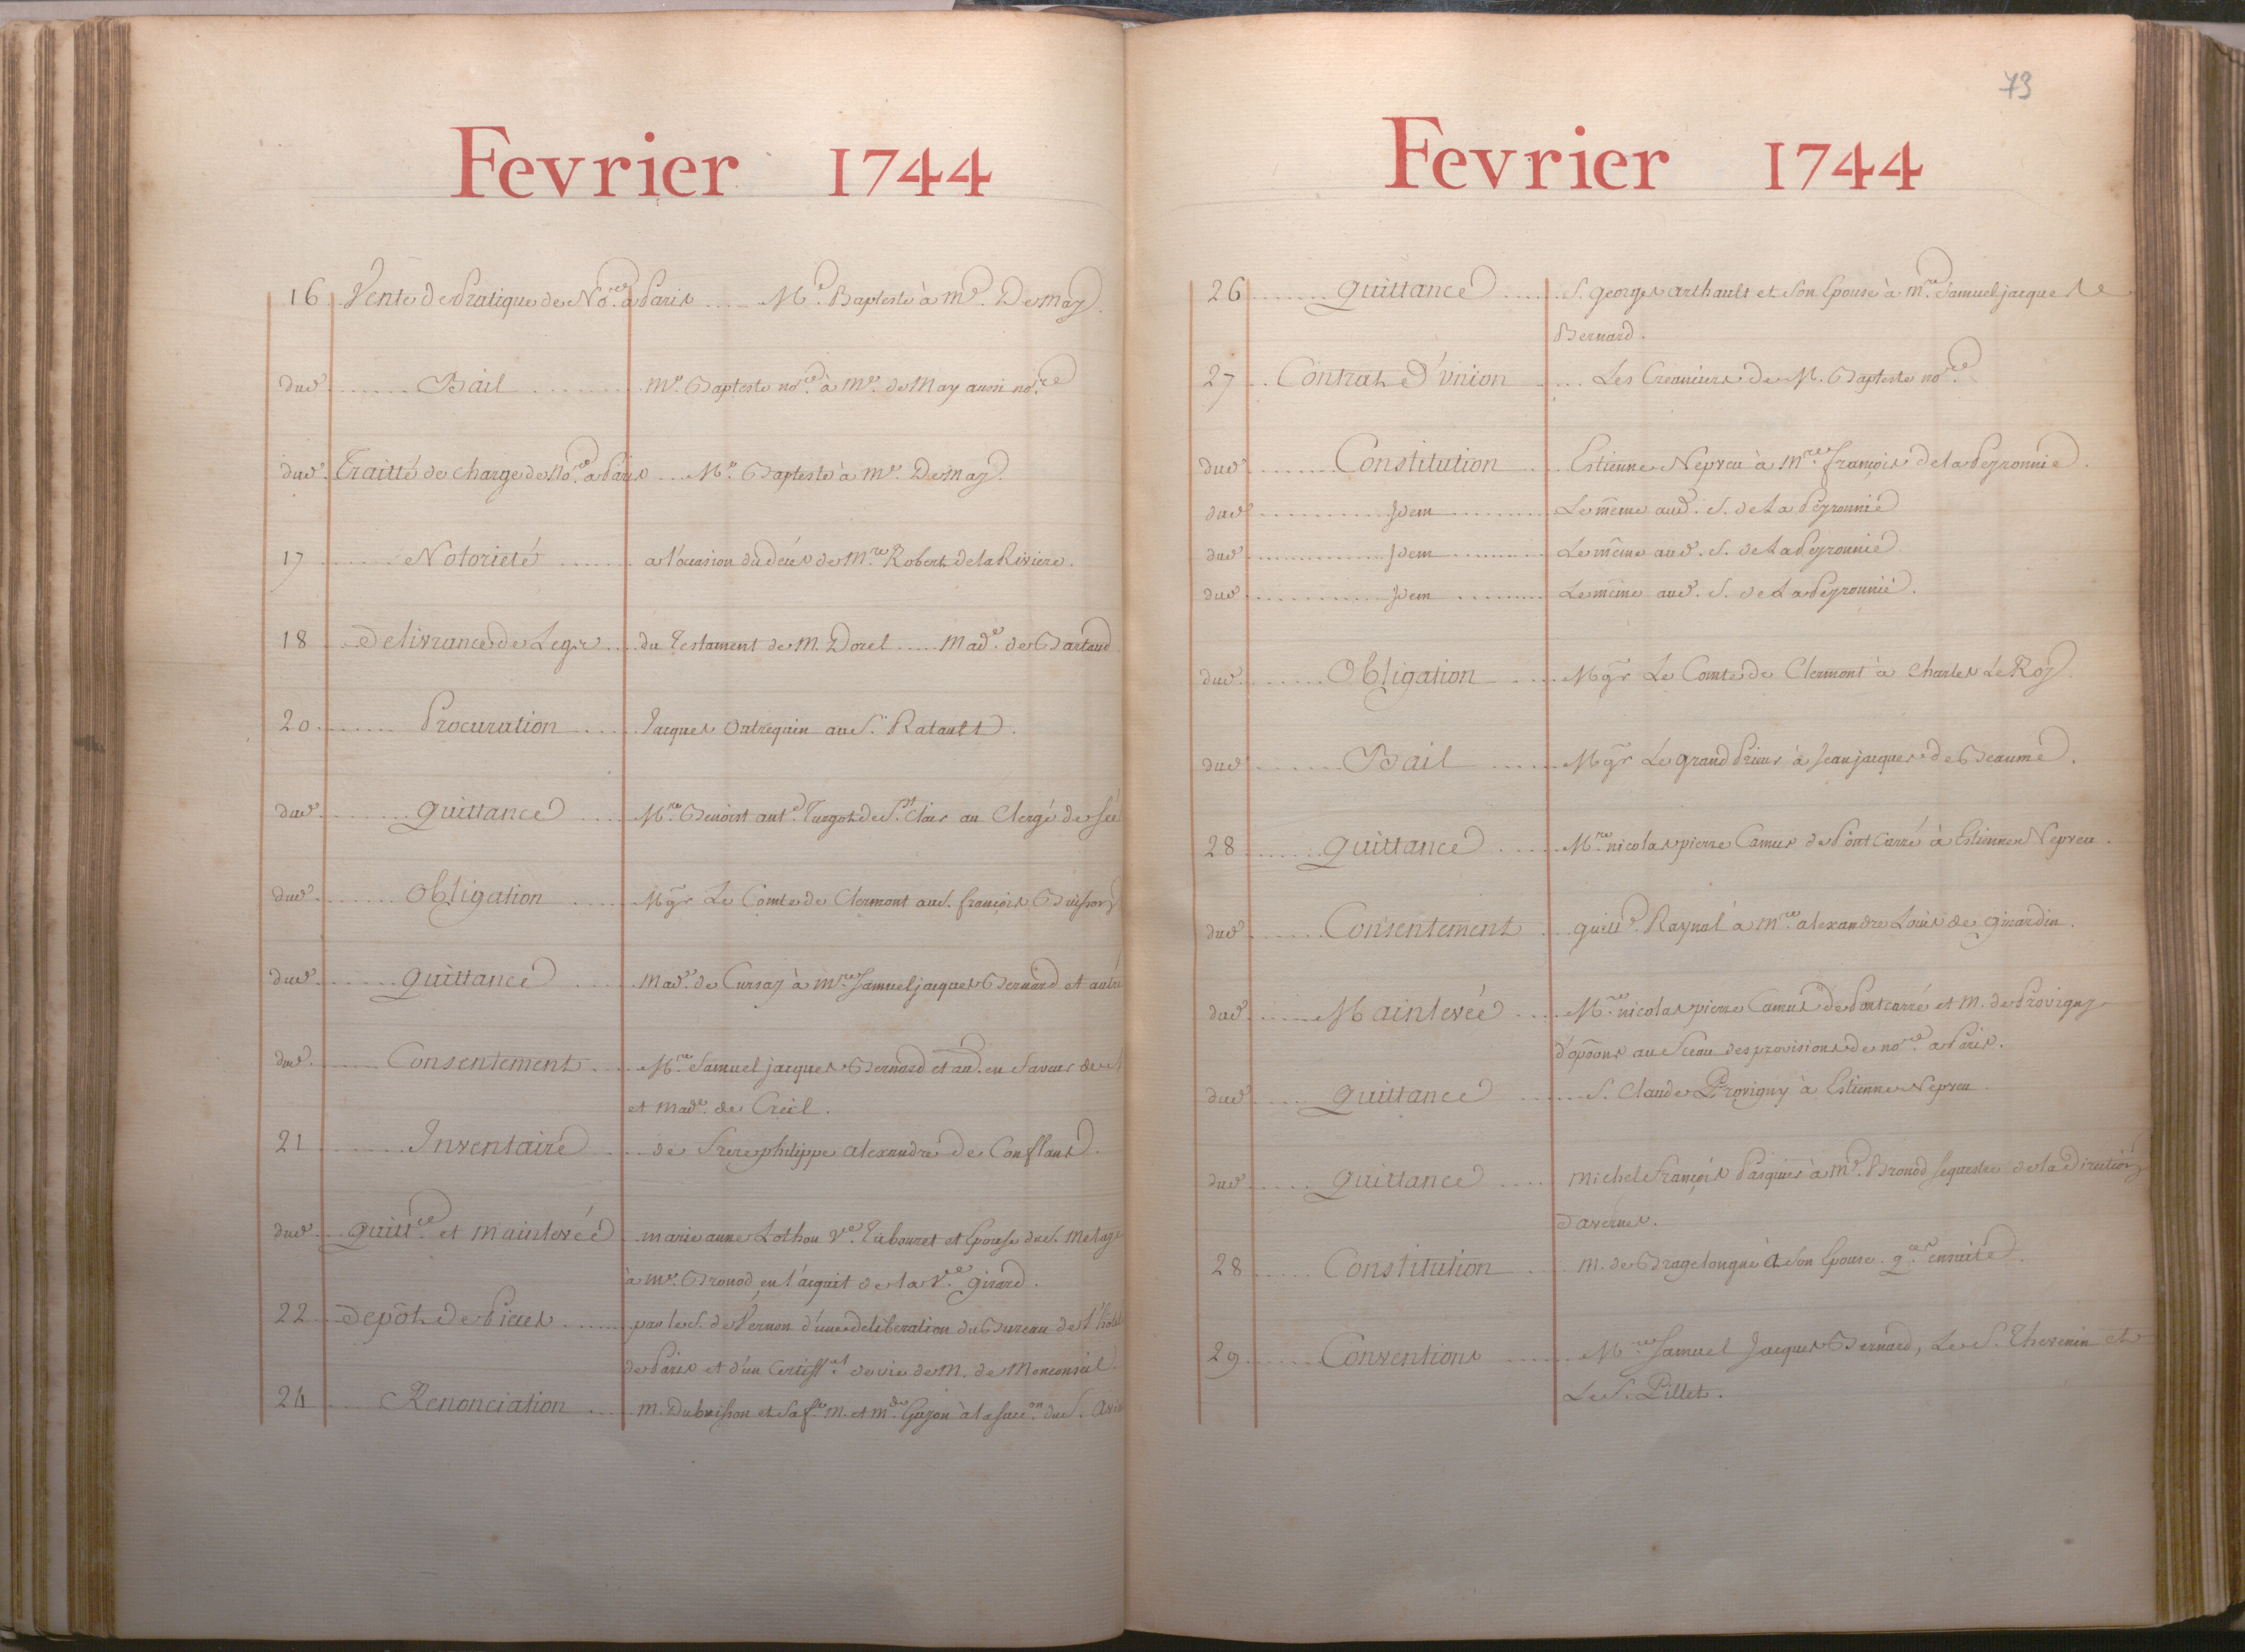 Fevrier 1744
16 Vente de Pratique de No.re a Paris .... Me. Bapteste à me. Demay.
dud. Bail me. Bapteste no.re à me. de May aussi no.re
dud. Traitté de charge de No.re a Paris ... Me. Bapteste à me. Demay.
17 Notorieté a l'occasion du decès de Mre. Robert de la Riviere.
18 Delivrance de Legs du Testament de M. Dorel ..... Made. de Bartaud
20 Procuration Jacques Outrequin au S. Ratault.
dud. Quittance Mre. Benoist ant.e Turgot de St. Clair au Clergé de
dud. Obligation Mgr Le Comte de Clermont au S. françois Buisson
dud. Quittance Made. de Cursay à Mre. Samuel jacques Bernard et autre
dud. Consentement Mre. Samuel jacques Bernard et au. en faveur de
et Made. de Creil.
21 Inventaire de Frere philippe alexandre de Conflans.
dud. Quitt.ce et mainlevée marie anne Lothon Ve. Tabouret et Epouse du S.
à me. Bronod, en l'acquit de la Ve. Girard.
22 Depôt de Pieces par le S. de Vernon d'une deliberation du Bureau de l'hôtel
de Paris et d'un Certiff.at de vie de M. de Monconseil.
24 Renonciation M. Dubuisson et sa fe. M. et Mde. Guyon à la succ.on du S.
73
Fevrier 1744
26 Quittance S. Georges arthault et son Epouse à Mre. Samuel jacques
Bernard.
27 Contrat d'union ... Les Creanciers de M. Bapteste no.re
dud. Constitution Estienne Nepveu à Mre. françois de la Peyronnie.
dud. Idem Le même aud. S. de La Peyronnie
dud. Idem Le même aud. S. de La Peyronnie
dud. Idem Le même aud. S. de La Peyronnie.
dud. Obligation Mgr Le Comte de Clermont à Charles Le Roy.
dud. Bail Mgr Le grand Prieur à Jean jacques de Beaume.
28 Quittance Mre. nicolas pierre Camus de Pont Carré à Estienne Nepveu.
dud. Consentement Guill.e Raynal à Mre. alexandre Louis de Girardin.
dud. Mainlevée Mre. nicolas pierre Camus de Pontcarré et M. de Provigny
d'opons au Sceau des provisions de no.re a Paris.
dud. Quittance S. Claude Provigny à Estienne Nepveu.
dud. Quittance Michel François Pasquier à me. Bronod sequestre de la Direction
Davernes.
28 Constitution M. de Bragelongne à son Epouse. q.ce ensuite.
29 Conventions Mre. Samuel Jacques Bernard, Le S. Thevenin et
Le S. Pillet.